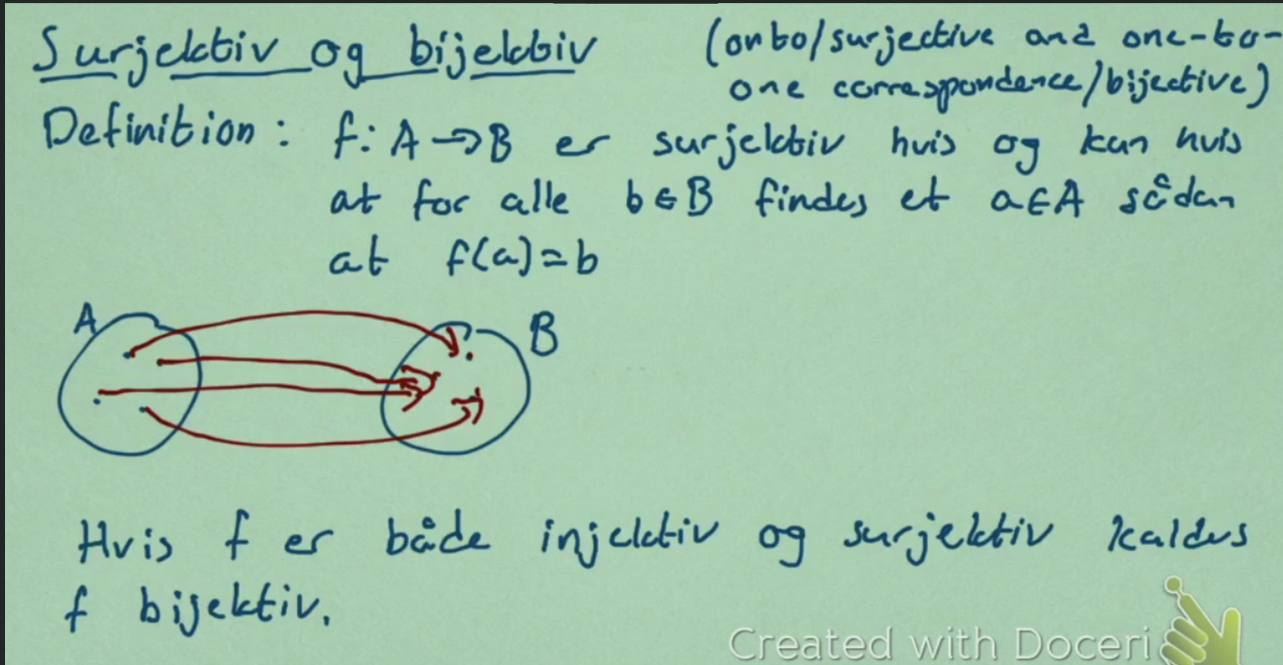 Surjektiv og bijektiv (onto/surjective and one-to-
one correspondence/bijective)
Definition: f: A → B er surjektiv hvis og kun hvis
at for alle b ∈ B findes et a ∈ A sådan
at f(a) = b
A B
Hvis f er både injektiv og surjektiv kaldes
f bijektiv.
Created with Doceri